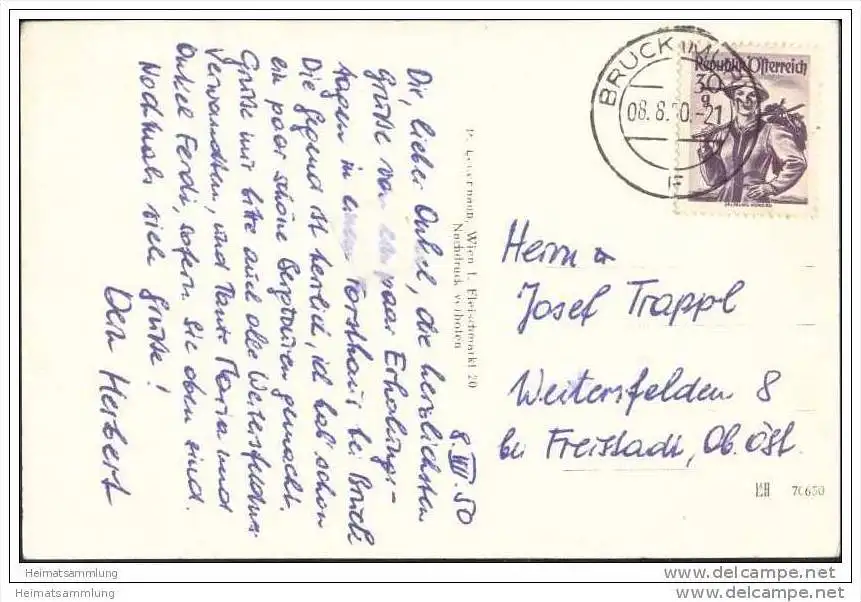 8. VIII. 50
Dir, lieber Onkel, die herzlichsten
Grüße von ein paar Erholungs-
tagen in einem Forsthaus bei Bruck
Die Gegend ist herrlich, ich hab' schon
ein paar schöne Bergtouren gemacht.
Grüße mir bitte auch alle Weitersfeldner
Verwandten, und Tante Maria und
Onkel Ferdi, sofern sie oben sind.
Nochmals viele Grüße!
Dein Herbert
Wien I, Fleischmarkt 20
Nachdruck verboten
BRUCK
08. 8. 50.-21
Republik Österreich
30
g
Herrn
Josef Trappl
Weitersfelden 8
bei Freistadt, Ob. Öst.
70650
Heimatsammlung
Heimatsammlung
www.delcampe.net
www.delcampe.net